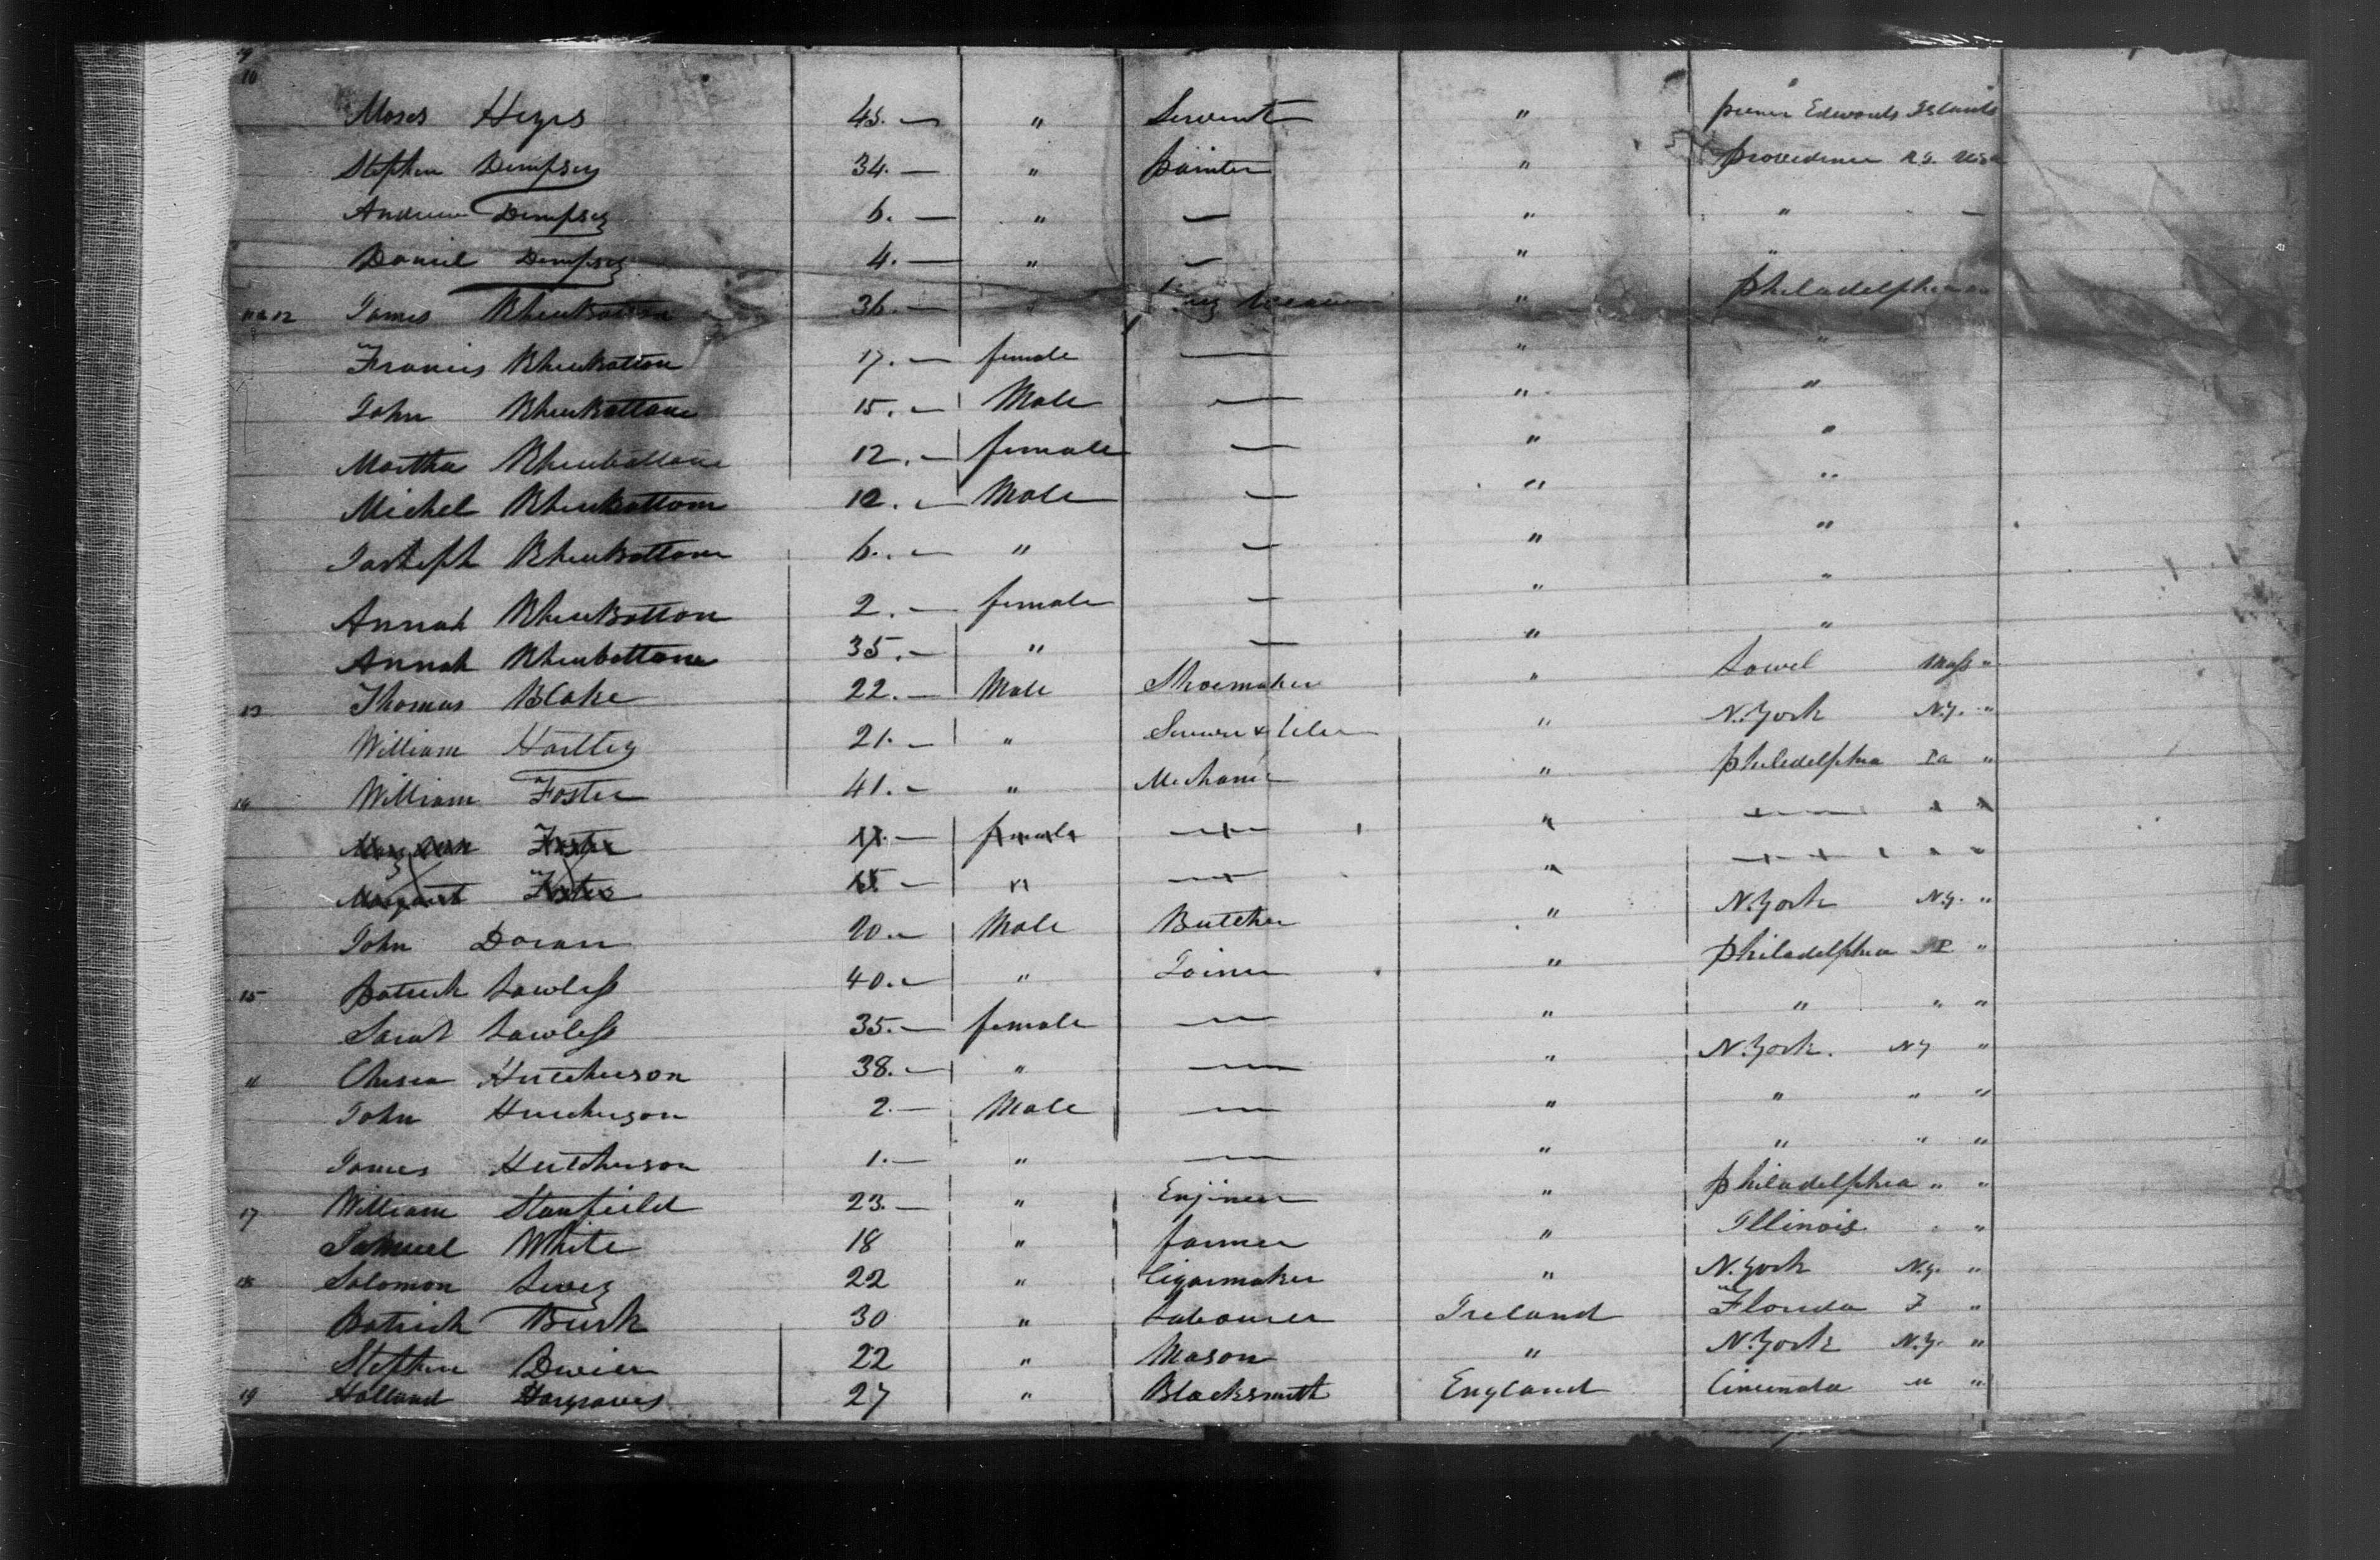 9
10
Moses Heyes 45. — " Servent " prince Edwards Islands
Stephen Dempsey 34. — " painter " providence R.I.
Andrew Dempsey 6. — " — " " —
Daniel Dempsey 4. — " — " "
11 & 12 James Rhenbottom 36. — " " philadelphia
Francis Rhenbottom 17. — female — " "
John Rhenbottom 15. — Male — " "
Martha Rhenbottom 12. — female — " "
Michel Rhenbottom 10. — Male — " "
Jasheph Rhenbottom 6. — " — " "
Annah Rhenbottom 2. — female — " "
Annah Rhenbottom 35. — " — " "
13 Thomas Blake 22. — Male Shoemaker " Lowel Mass "
William Hartley 21. — " " N. York N.Y. "
14 William Foster 41. — " Mechanic " philedelphia Pa "
Mary Ann Foster 17. — female — " — " "
Margaret Foster 15 — " — " — " "
John Doran 20. — Male Butcher " N. York N.Y. "
15 patrick Lawless 40. — " Joiner " philadelphia P. "
Sarat Lawless 35. — female — " " " "
" Hutcherson 38. — " — " N. York. NY "
John Hutcherson 2. — Male — " " " "
James Hutcherson 1. — " — " " " "
17 William Stanfield 23. — " Enjineer " philadelphia " "
Samuel White 18 " farmer " Illinois " "
18 Solomon Levey 22 " Cigarmaker " N. York N.Y. "
Patrick Burk 30 " Labourer Ireland Florida F "
Stephen Dwier 22 " Mason " N. York N.Y. "
19 Holland Hargraves 27 " Blacksmith England Cincinnata " "